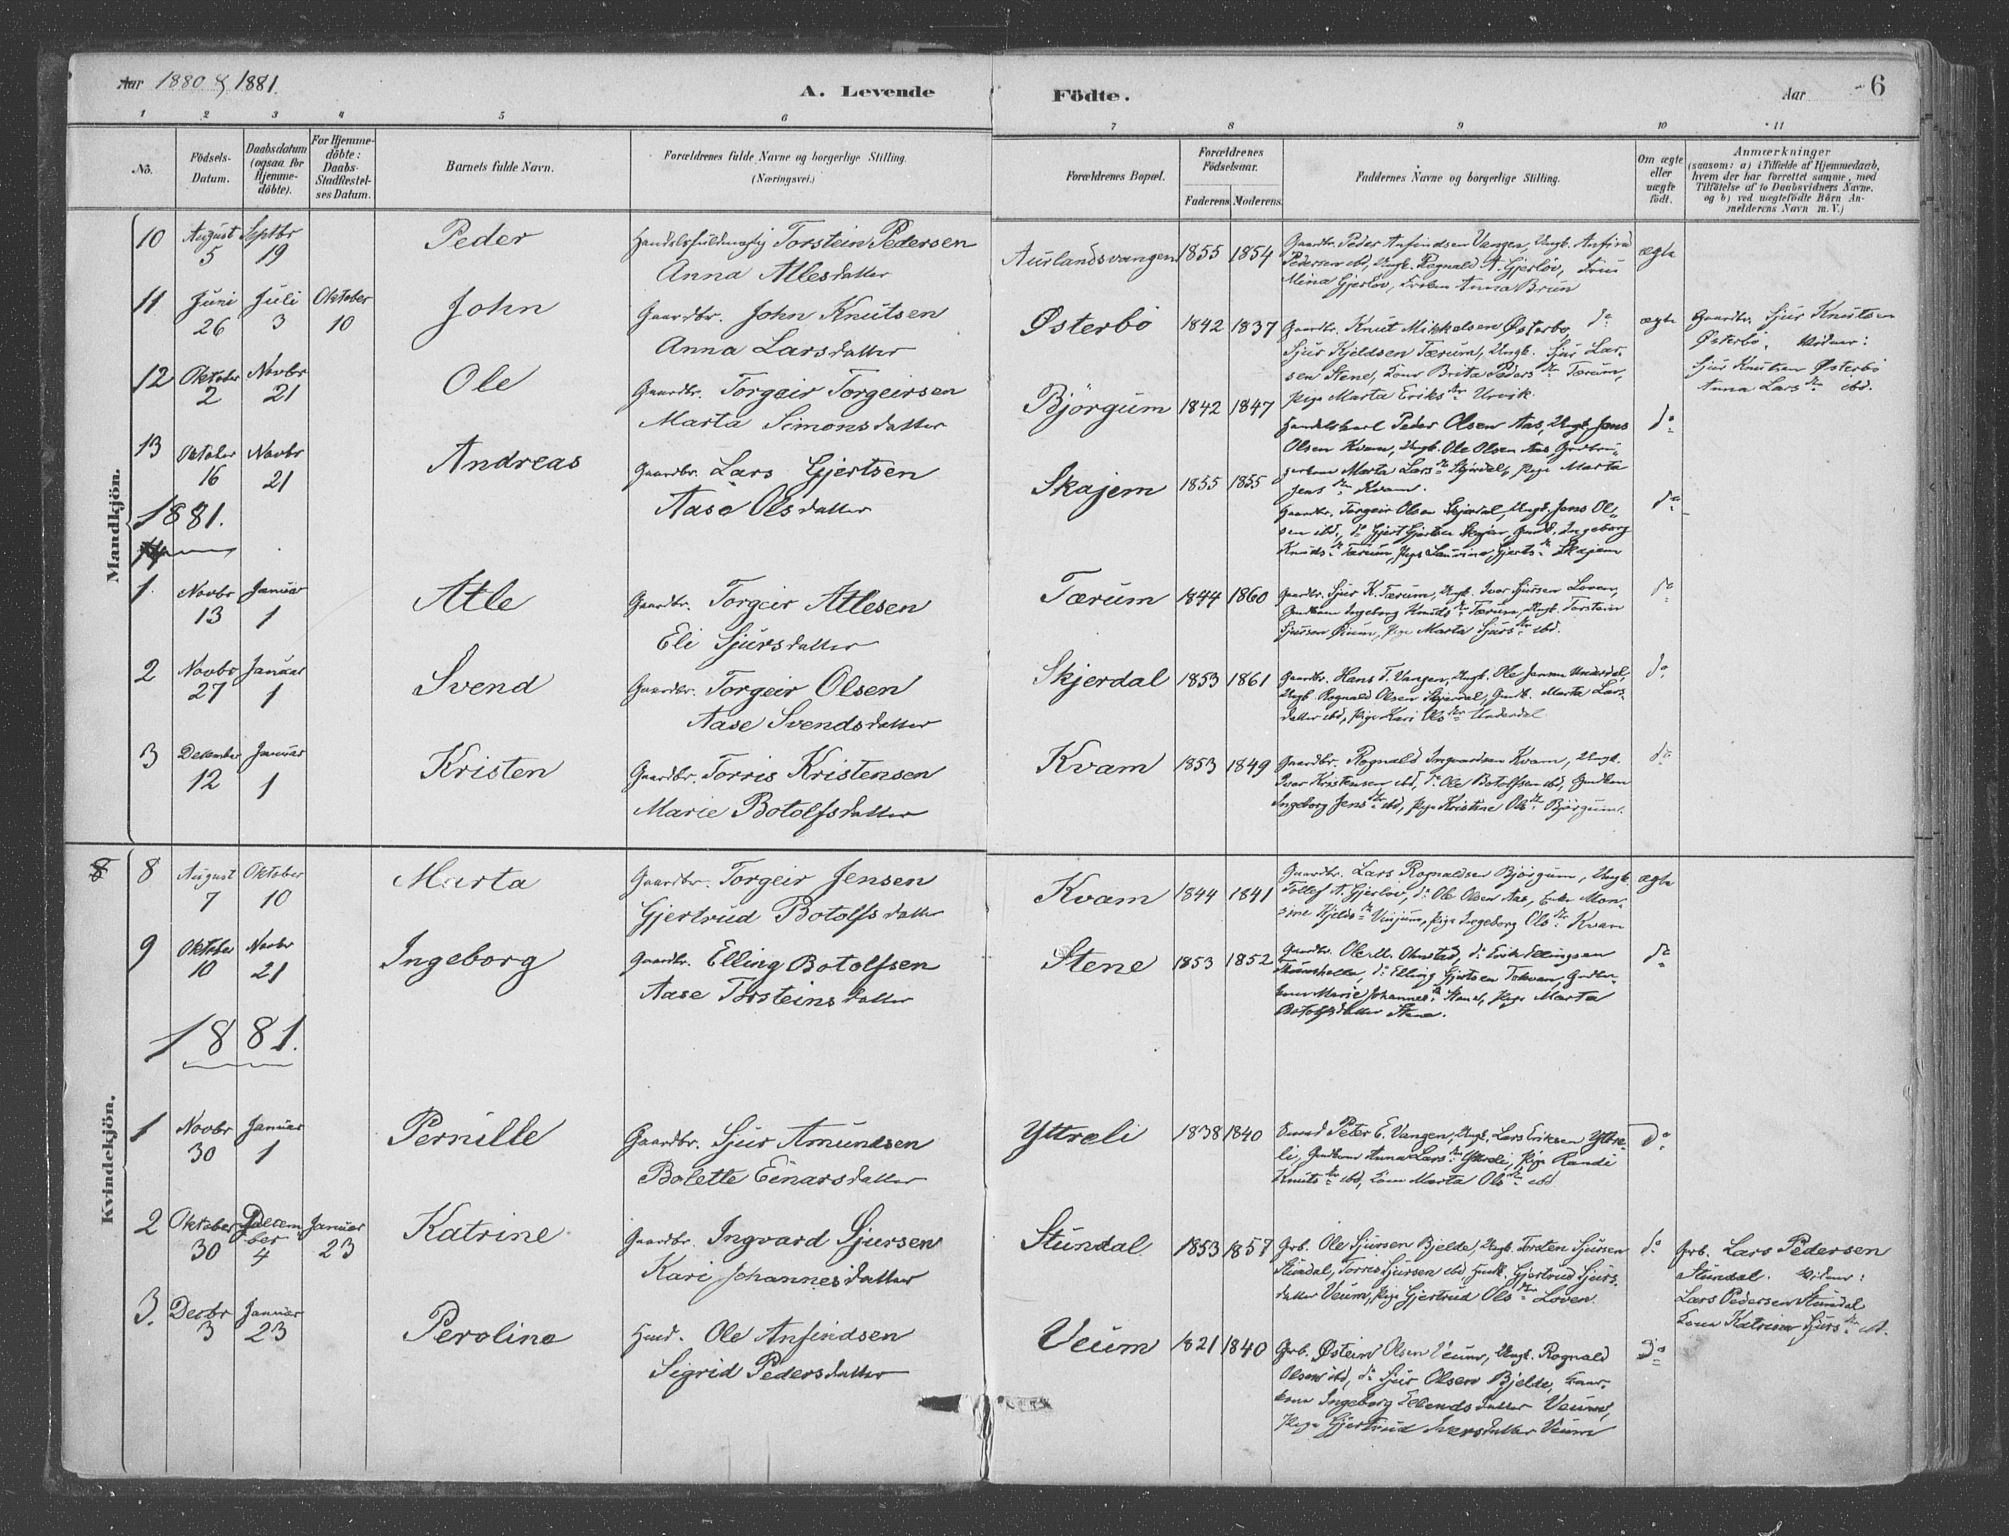 Aar 1880 & 1881.
A. Levende
Födte.
Aar
6
1 2 3 4 5 6 7 8 9 10 11
No.
Födsels-Datum.
Daabsdatum (ogsaa for Hjemmedöbte).
For Hjemmedöbte: Daabs-Stadfæstelses Datum.
Barnets fulde Navn.
Forældrenes fulde Navne og borgerlige Stilling.
(Næringsvei.)
Forældrenes Bopæl.
Forældrenes Födselsaar.
Faderens Moderens
Faddernes Navne og borgerlige Stilling.
Om ægte eller uægte födt.
Anmærkninger
(saasom: a) i Tilfælde af Hjemmedaab, hvem der har forrettet samme, med Tilföielse af to Daabsvidners Navne, og b) ved uægtefödte Börn Anmelderens Navn m. V.)
Mandkjön.
10 August 5 Septbr 19 Peder Torstein Pedersen
Anna Atlesdatter
Aurlandsvangen 1855 1854 Gaardbr. Peder Anfindsen Vangen, Ungk. Anfind
Pedersen ibd, Ungk. Rognald A. Gjerløv, Frue
Mina Gjerløv, Enken Anna Brun
ægte
11 Juni 26 Juli 3 Oktober 10 John Gaardbr. John Knutsen
Anna Larsdatter
Østerbö 1842 1837 Gaardbr. Knut Mikkelsen Østerbø, do
Sjur Kjeldsen Tærum, Ungk. Sjur Lar-
sen Stene, Kone Brita Pedersdtr Tærum,
Pige Marta Eriksdtr Urvik.
ægte
Gaardbr. Sjur Knutsen
Østerbö. Vidner:
Sjur Knutsen Østerbö
Anna Larsdtr ibd.
12 Oktober 2 Novbr 21 Ole Gaardbr. Torgeir Torgeirsen
Marta Simonsdatter
Björgum 1842 1847 Handelskarl Peder Olsen Aas, Ungk. Jens
Olsen Kvam, Ungk. Ole Olsen Aas,
Marta Larsdtr Skjerdal, Pige Marta
Jensdtr Kvam.
do
13 Oktober 16 Novbr 21 Andreas Gaardbr. Lars Gjertsen
Aase Olsdatter
Skajem 1855 1855 Gaardbr. Torgeir Olsen Skjerdal, Ungk. Jens Ol-
sen ibd, do Gjert Gjertsen Skajem, Ingeborg
Knudsdtr Tærum, Pige Laurina Gjertsdtr Skajem
do
1881.
1 Novbr 13 Januar 1 Atle Gaardbr. Torgeir Atlesen
Eli Sjursdatter
Tærum 1844 1860 Gaardbr. Sjur K. Tærum, Ungk. Iver Sjursen Loven,
Ingeborg Knudsdtr Tærum, Ungk. Torstein
Sjursen Øium, Pige Marta Sjursdtr ibd.
do
2 Novbr 27 Januar 1 Svend Gaardbr. Torgeir Olsen
Aase Svendsdatter
Skjerdal 1853 1861 Gaardbr. Hans T. Vangen, Ungk. Ole Jensen Underdal,
Ungk. Rognald Olsen Skjerdal, Marta Lars-
datter ibd, Pige Kari Olsdtr Underdal
do
3 December 12 Januar 1 Kristen Gaardbr. Torris Kristensen
Marie Botolfsdatter
Kvam 1853 1849 Gaardbr. Rognald Ingvardsen Kvam, Ungk.
Iver Kristensen ibd, do Ole Botolfsen ibd,
Ingeborg Jensdtr ibd, Pige Kristine Olsdtr Björgum.
do
Kvindekjön.
8 August 7 Oktober 10 Marta Gaardbr. Torgeir Jensen
Gjertrud Botolfsdatter
Kvam 1844 1841 Gaardbr. Lars Rognaldsen Björgum, Ungk.
Tollef A. Gjerløv, do Ole Olsen Aas, Enke Mon-
sine Kjeldsdtr Vinjum, Pige Ingeborg Olsdtr Kvam
ægte
9 Oktober 10 Novbr 21 Ingeborg Gaardbr. Elling Botolfsen
Aase Torsteinsdatter
Stene 1853 1852 Gaardbr. Ole M. Onstad, do Erik Ellingsen
do Elling Gjertsen Tokvam,
Marie Johannesdtr Stene, Pige Marta
Botolfsdatter Stene.
do
1881.
1 Novbr 30 Januar 1 Pernille Gaardbr. Sjur Amundsen
Bolette Einarsdatter
Yttreli 1838 1840 Peter E. Vangen, Ungk. Lars Eriksen Yttre-
li, Anna Larsdtr Yttreli, Pige Randi
Knutsdtr ibd, Kone Marta Olsdtr ibd
do
2 Oktober 30 December 4 Januar 23 Katrine Gaardbr. Ingvard Sjursen
Kari Johannesdatter
Stundal 1853 1857 Grb. Ole Sjursen Bjelde, Ungk. Torsten Sjursen
Stundal, Torris Sjursen ibd, Gjertrud Sjurs-
datter Veum, Pige Gjertrud Olsdtr Loven
do
Grb. Lars Pedersen
Stundal. Vidner:
Lars Pedersen Stundal
Kone Katrina Sjursdtr
3. Decbr 3 Januar 23 Peroline Husm. Ole Anfindsen
Sigrid Pedersdatter
Veum 1821 1840 Grb. Østein Olsen Veum, Ungk. Rognald
Olsen ibd, do Sjur Olsen Bjelde,
Ingeborg Ellendsdatter Veum,
Pige Gjertrud Iversdatter Veum
do